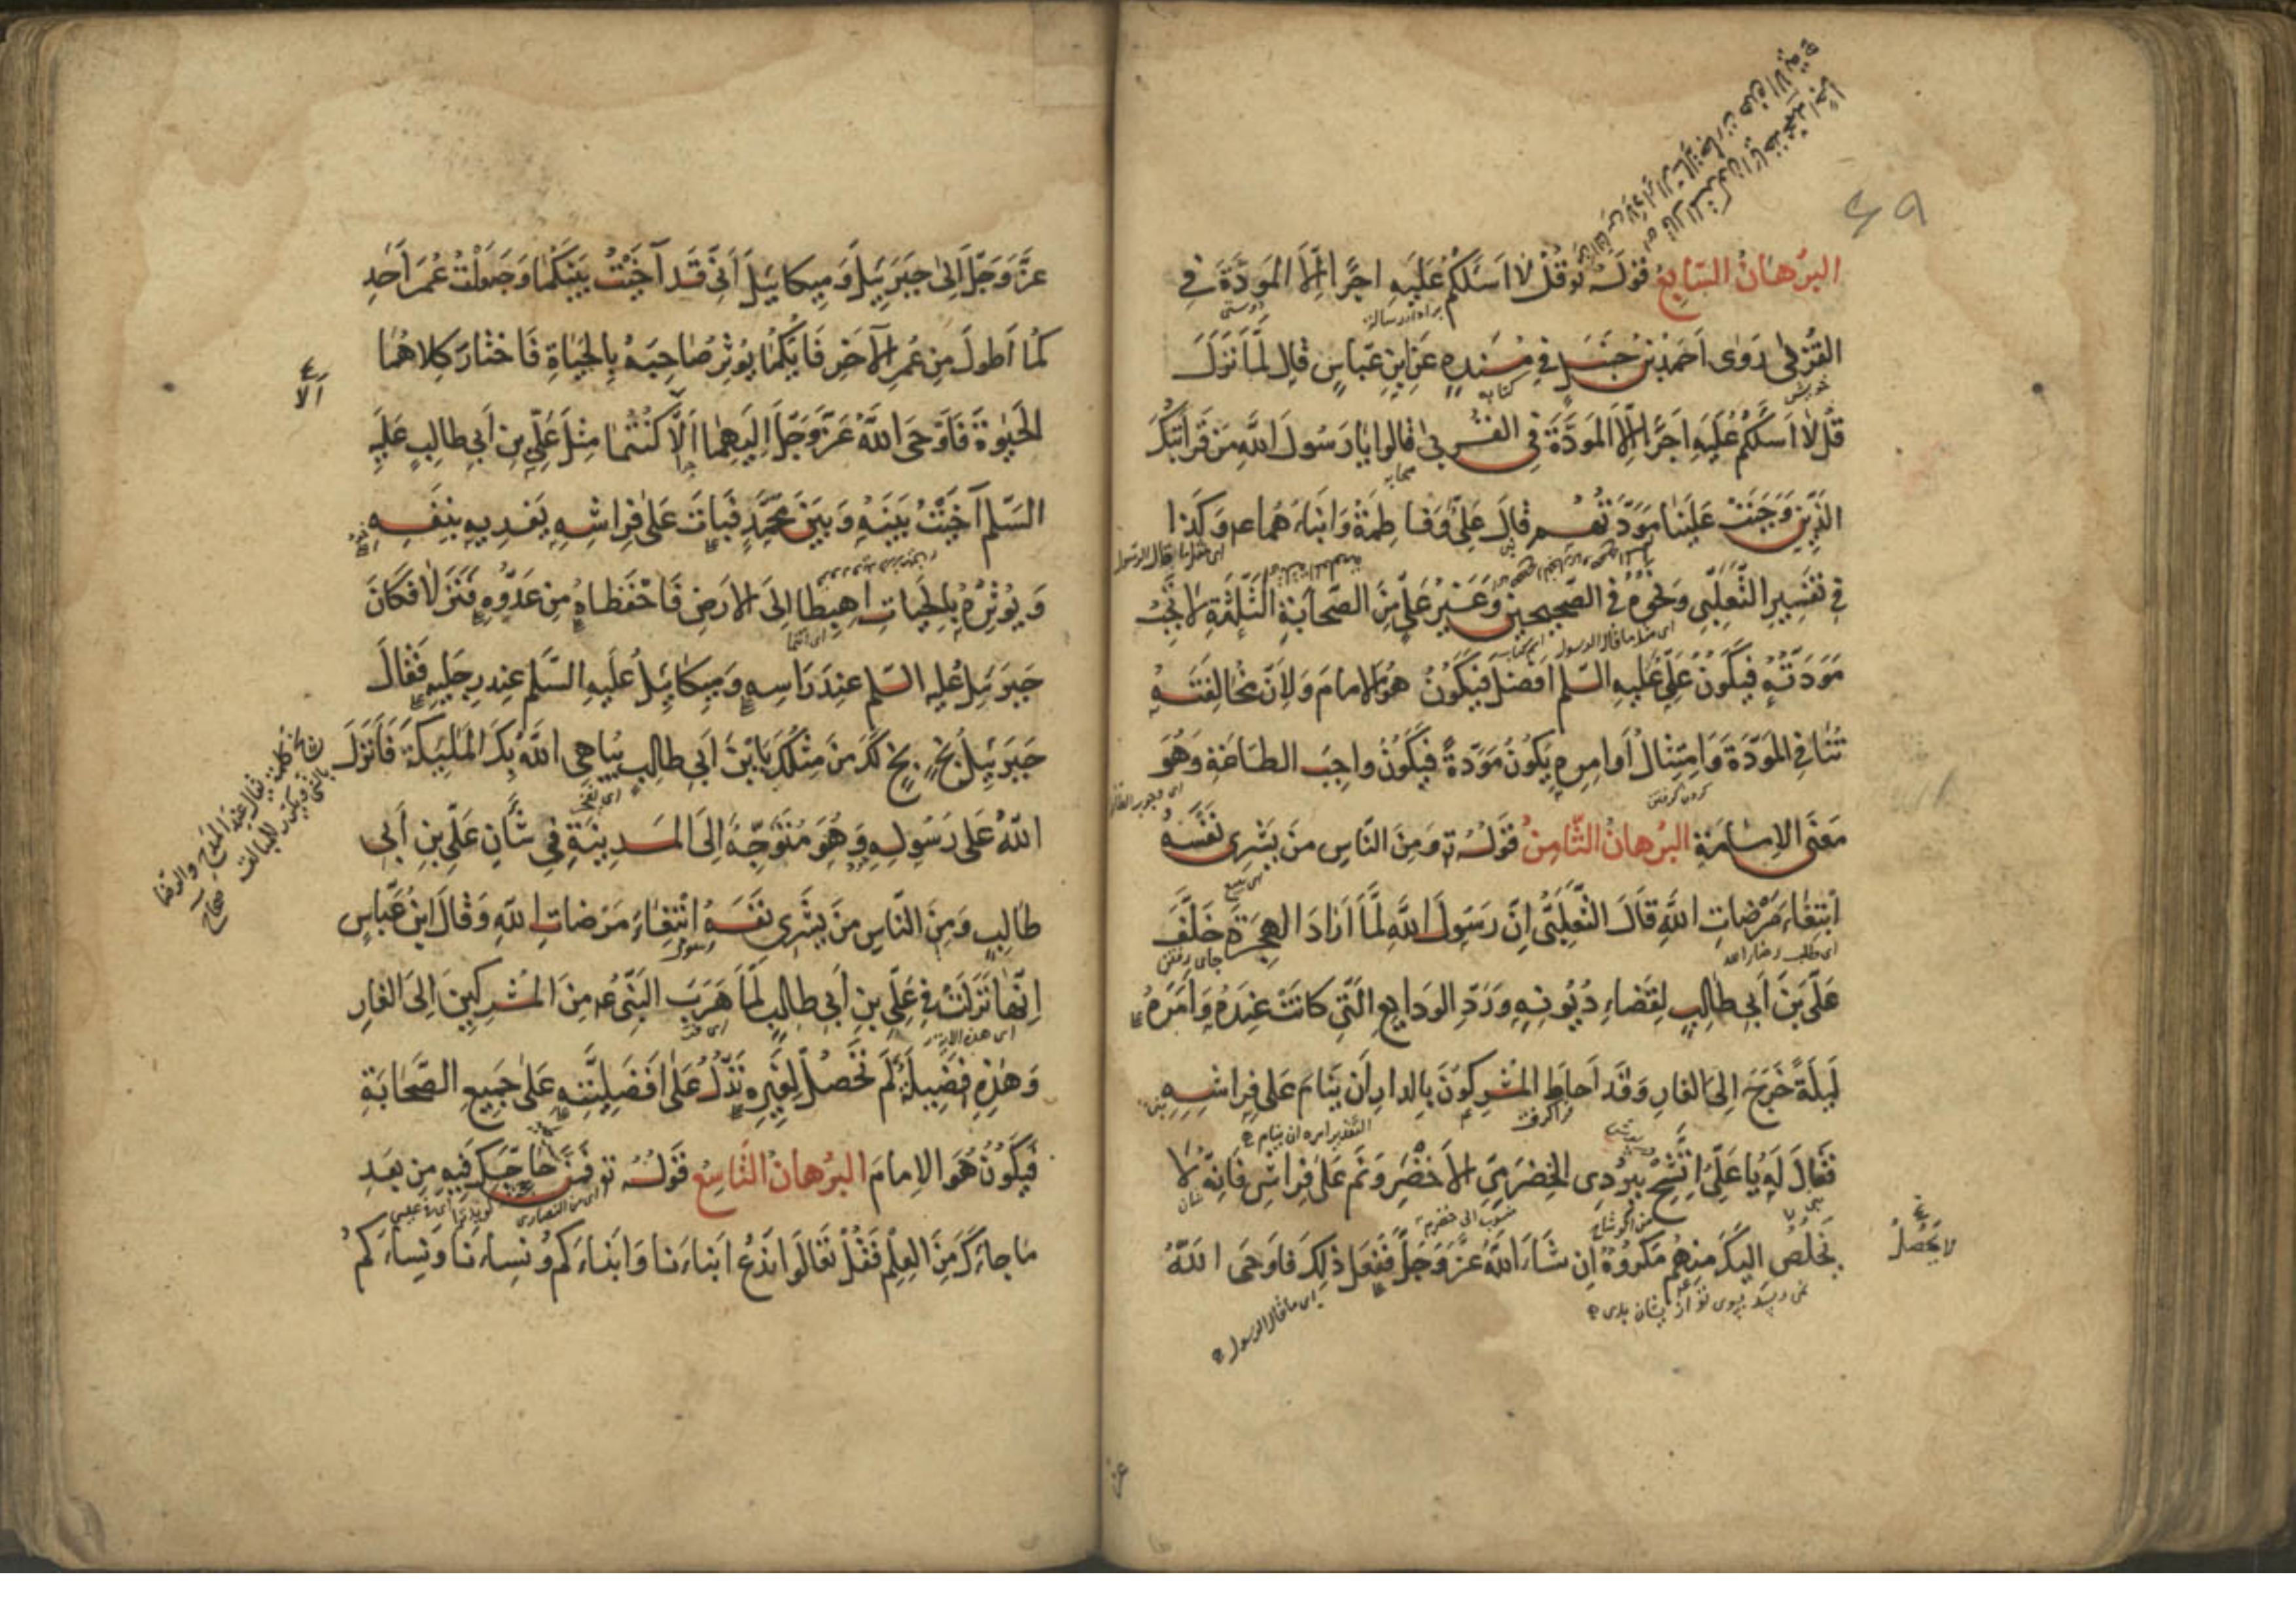 ٤٩
البُرهَانُ السّابِعُ قَولُهُ تَع قُلْ لا اَسئَلُكُم عَلَيهِ اَجرًا اِلَّا المَوَدَّةَ فِى
القُربىٰ رَوىٰ اَحمَدُ بنُ حَنبَلٍ فى مُسنَدِهِ عَنِ ابنِ عَبّاسٍ قالَ لَمّا نَزَلَ
قُل لا اَسئَلُكُم عَلَيهِ اَجرًا اِلَّا المَوَدَّةَ فِى القُربىٰ قالوا يا رَسُولَ اللّهِ مَن قَرابَتُكَ
الَّذينَ وَجَبَتْ عَلَينا مَوَدَّتُهُم قالَ عَلِىٌّ وَفاطِمَةُ وَابناهُما عم وَكَذا
فى تَفسيرِ الثَّعلَبِىِّ وَنَحوُهُ فِى الصَّحيحَينِ وَغَيرُ عَلِىٍّ مِنَ الصَّحابَةِ الثَّلٰثَةِ لا تَجِبُ
مَوَدَّتُهُ فَيَكُونُ عَلِىٌّ عَلَيهِ السَّلم اَفضَلَ فَيَكُونُ هُوَ الاِمامَ وَلِاَنَّ مُخالَفَتَهُ
تُنافِى المَوَدَّةَ وَامتِثالُ اَوامِرِهِ يَكُونُ مَوَدَّةً فَيَكُونُ واجِبَ الطّاعَةِ وَهُوَ
مَعنَى الاِمامَةِ البُرهانُ الثّامِنُ قَولُهُ تع وَمِنَ النّاسِ مَن يَشرِى نَفسَهُ
ابتِغاءَ مَرْضاتِ اللّهِ قالَ الثَّعلَبِىُّ اِنَّ رَسُولَ اللّهِ لَمّا اَرادَ الهِجرَةَ خَلَّفَ
عَلىَّ بنَ اَبى طالِبٍ لِقَضاءِ دُيُونِهِ وَرَدِّ الوَدايِعِ الَّتى كانَتْ عِندَهُ وَاَمَرَهُ
لَيلَةً خَرَجَ اِلَى الغارِ وَقَد اَحاطَ المُشرِكُونَ بِالدّارِ اَن يَنامَ عَلى فِراشِهِ
فَقالَ لَهُ يا عَلِىُّ اتَّشِحْ بِبُردِى الحَضرَمِىِّ الاَخضَرِ وَنَم عَلى فِراشى فَاِنَّهُ لا
يَخلُصُ اِلَيكَ مِنهُم مَكرُوهٌ اِن شاءَ اللّهُ عَزَّ وَجَلَّ فَفَعَلَ ذلِكَ فَاَوحَى اللّهُ
لا يَحصُلُ
اى ما قال الرسول
عَزَّ وَجَلَّ اِلىٰ جَبرَئيلَ وَميكائيلَ اَنّى قَد آخَيتُ بَينَكُما وَجَعَلْتُ عُمرَ اَحَدِ
كُما اَطولَ مِن عُمرِ الآخَرِ فَاَيُّكُما يُؤثِرُ صاحِبَهُ بِالحَيٰاةِ فَاختارَ كِلاهُما
اَلا
الحَيٰوةَ فَاَوحَى اللّهُ عَزَّ وَجَلَّ اِلَيهِما اَلّا كُنتُما مِثلَ عَلىِّ بنِ اَبى طالِبٍ عَلَيهِ
السَّلم آخَيتُ بَينَهُ وَبَينَ مُحَمَّدٍ فَباتَ عَلىٰ فِراشِهِ يَفديهِ بِنَفسِهِ
وَيُؤثِرُهُ بِالحَياتِ اِهبِطا اِلَى الاَرضِ فَاحْفَظاهُ مِن عَدُوِّهِ فَنَزَلا فَكانَ
جَبرَئيلُ عَلَيهِ السّلم عِندَ رَاسِهِ وَميكائيلُ عَلَيهِ السّلم عِندَ رِجلَيهِ فَقالَ
جَبرَئيلُ بَخٍ بَخٍ لَكَ مَن مِثلُكَ يَا بنَ اَبى طالِبٍ يُباهى اللّهُ بِكَ المَلٰئِكَةَ فَاَنزَلَ
اللّهُ عَلى رَسُولِهِ وَهُوَ مُتَوَجِّهٌ اِلَى المَدينَةِ فى شَانِ عَلىِّ بنِ اَبى
طالِبٍ وَمِنَ النّاسِ مَن يَشرِى نَفسَهُ ابْتِغاءَ مَرْضاتِ اللّهِ وَقالَ ابنُ عَبّاسٍ
اِنَّها نَزَلَتْ فى عَلىِّ بنِ اَبى طالِبٍ لَمّا هَرَبَ النَّبِىُّ عم مِنَ المُشرِكينَ اِلَى الغارِ
وَهٰذِهِ فَضيلَةٌ لَم تَحصُلْ لِغَيرِهِ تَدُلُّ عَلىٰ اَفضَلِيَّتِهِ عَلىٰ جَميعِ الصَّحابَةِ
فَيَكُونُ هُوَ الاِمامَ البُرهانُ التّاسِعُ قَولُهُ تع فَمَن حاجَّكَ فيهِ مِن بَعدِ
ما جاءَكَ مِنَ العِلمِ فَقُلْ تَعالَوا نَدعُ اَبناءَنا وَاَبناءَكُم وَنِساءَنا وَنِساءَكُم